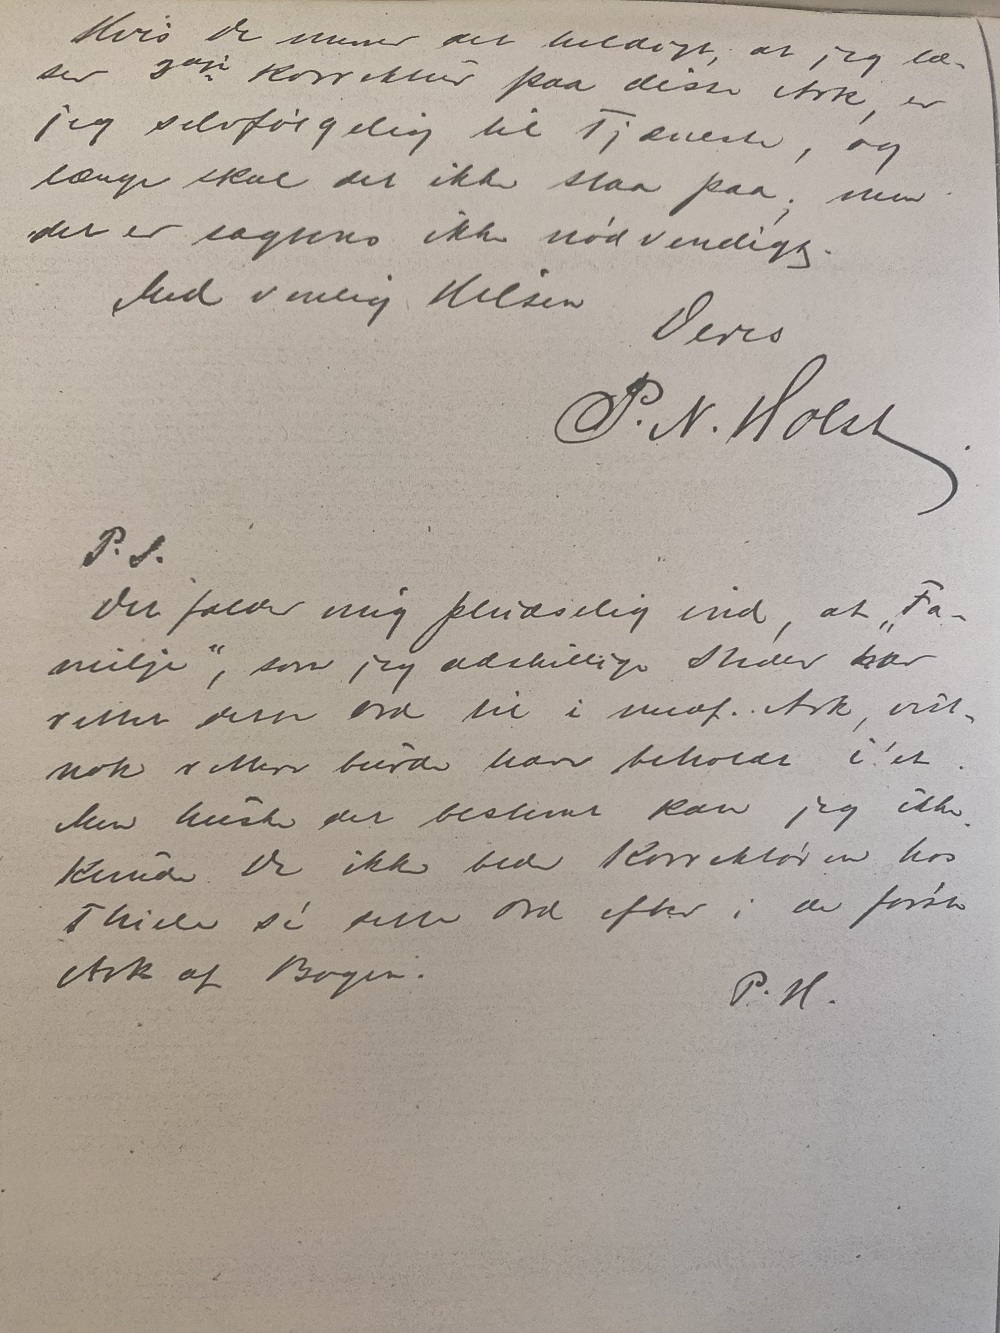 Hvis De mener det heldigt, at jeg læ-
ser Korrektur paa disse Ark, er
jeg selvfølgelig til Tjeneste, og
længe skal det ikke staa paa; men
det er sagtens ikke nødvendigt.
Med venlig Hilsen
Deres
P. N. Holst
P. S.
Det falder mig pludselig ind, at „Fa-
milje“, som jeg adskillige Steder har
rettet dette Ord til i Ark, vist-
nok rettere burde have beholdt i'et.
Men huske det bestemt kan jeg ikke.
Kunde De ikke bede Korrektøren hos
Thiele sé dette Ord efter i de første
Ark af Bogen.
P. H.